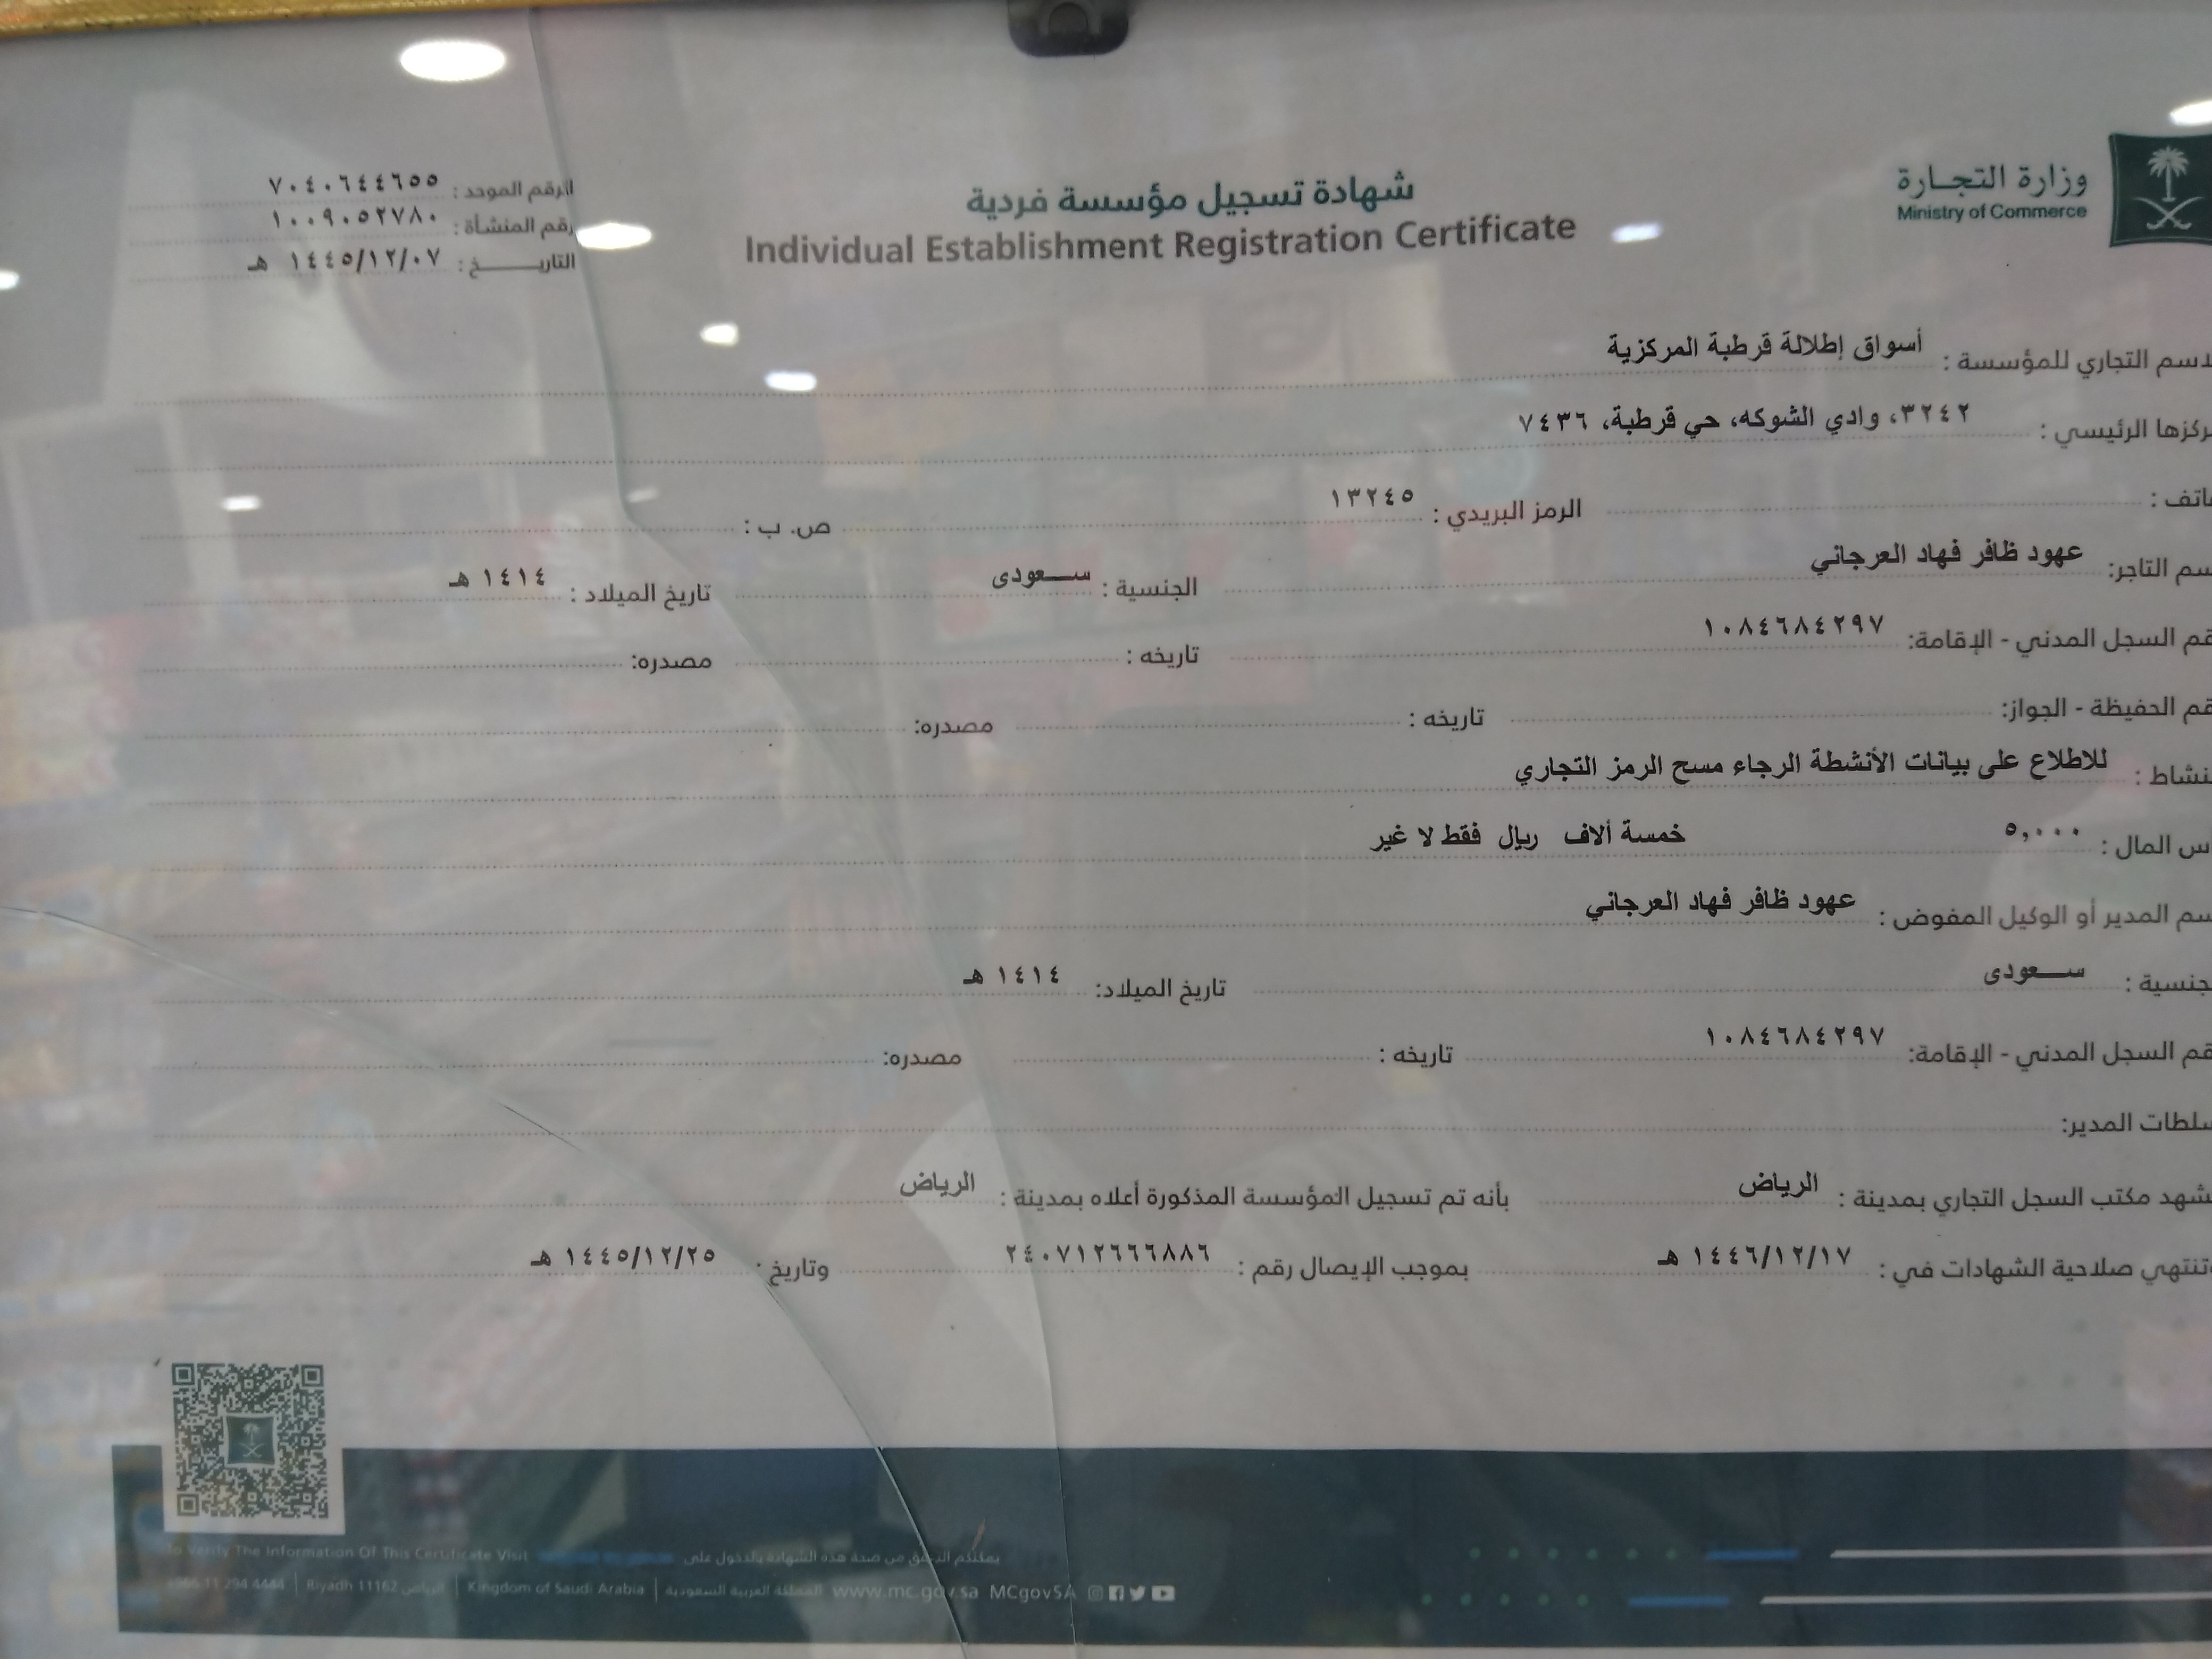 وزارة التجـارة
Ministry of Commerce
شهادة تسجيل مؤسسة فردية
Individual Establishment Registration Certificate
الرقم الموحد : ٧٠٤٠٦٤٤٦٥٥
رقم المنشأة : ١٠٠٩٠٥٢٧٨٠
التاريـــــخ : ١٤٤٥/١٢/٠٧ هـ
لاسم التجاري للمؤسسة : أسواق إطلالة قرطبة المركزية
ركزها الرئيسي : ٣٢٤٢، وادي الشوكه، حي قرطبة، ٧٤٣٦
اتف : الرمز البريدي : ١٣٢٤٥ ص. ب :
سم التاجر: عهود ظافر فهاد العرجاني الجنسية : سـعودى تاريخ الميلاد : ١٤١٤ هـ
قم السجل المدني - الإقامة: ١٠٨٤٦٨٤٢٩٧ تاريخه : مصدره:
قم الحفيظة - الجواز: تاريخه : مصدره:
نشاط : للاطلاع على بيانات الأنشطة الرجاء مسح الرمز التجاري
س المال : ٥,٠٠٠ خمسة ألاف ريال فقط لا غير
سم المدير أو الوكيل المفوض : عهود ظافر فهاد العرجاني
جنسية : سـعودى تاريخ الميلاد: ١٤١٤ هـ
قم السجل المدني - الإقامة: ١٠٨٤٦٨٤٢٩٧ تاريخه : مصدره:
لطات المدير:
شهد مكتب السجل التجاري بمدينة : الرياض بأنه تم تسجيل المؤسسة المذكورة أعلاه بمدينة : الرياض
تنتهي صلاحية الشهادات في : ١٤٤٦/١٢/١٧ هـ بموجب الإيصال رقم : ٢٤٠٧١٢٦٦٦٨٨٦ وتاريخ : ١٤٤٥/١٢/٢٥ هـ
To Verify The Information Of This Certificate Visit يمكنكم التحقق من صحة هذه الشهادة بالدخول على
+966 11 294 4444 | Riyadh 11162 الرياض | Kingdom of Saudi Arabia | المملكة العربية السعودية www.mc.gov.sa MCgovSA